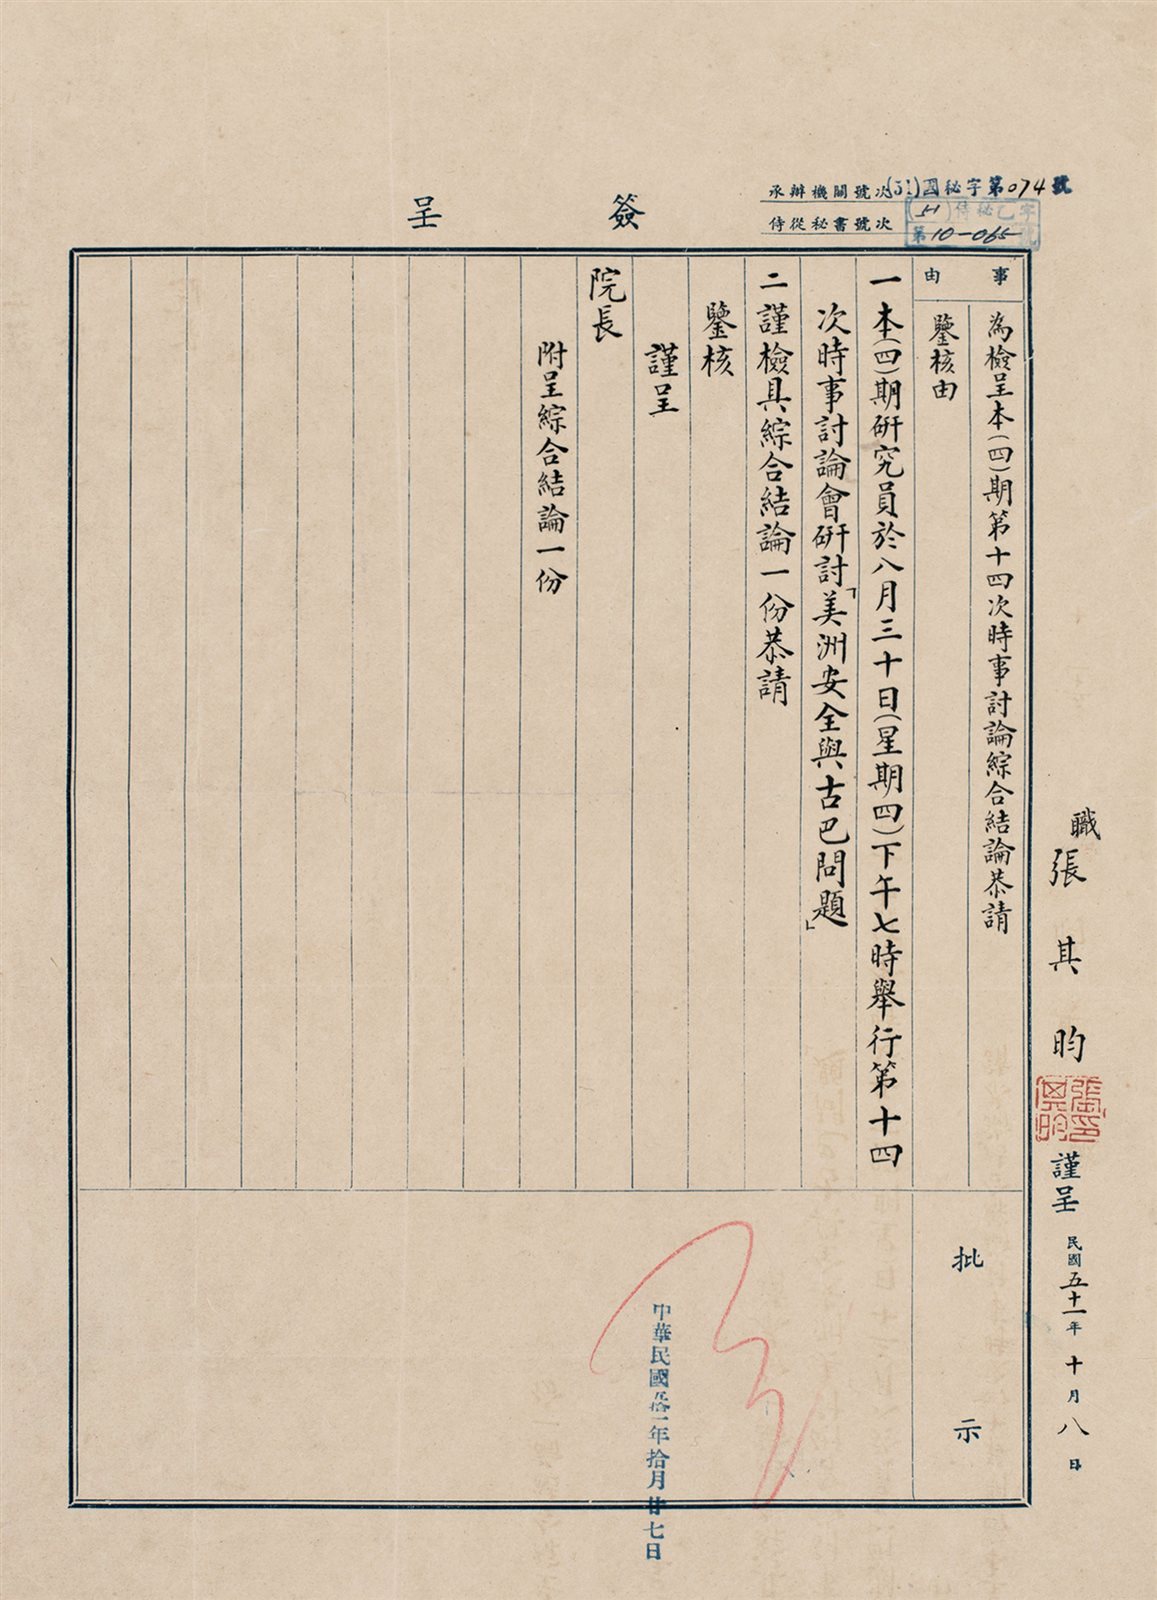 簽呈
承辦機關號次(51)國秘字第074號
侍從秘書號次(51)侍秘乙字第10-065號
事由
為檢呈本(四)期第十四次時事討論綜合結論恭請
鑒核由
一本(四)期研究員於八月三十日(星期四)下午七時舉行第十四
次時事討論會研討「美洲安全與古巴問題」
二謹檢具綜合結論一份恭請
鑒核
謹呈
院長
附呈綜合結論一份
職張其昀
張其昀印
謹呈 民國五十一年十月八日
批示
中華民國五拾一年拾月廿七日